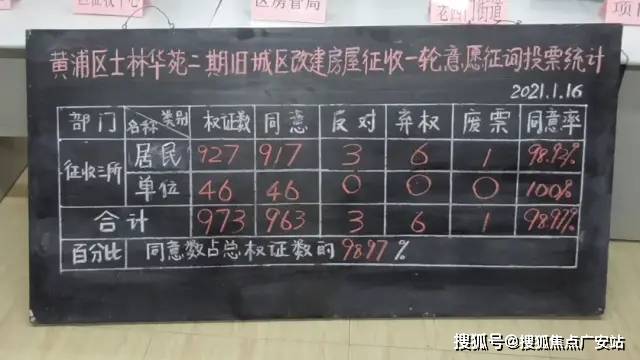 区房管局
老西门街道
黄浦区士林华苑二期旧城区改建房屋征收一轮意愿征询投票统计
2021.1.16
部门 名称 类别 权证数 同意 反对 弃权 废票 同意率
征收三所 居民 927 917 3 6 1 98.92%
单位 46 46 0 0 0 100%
合计 973 963 3 6 1 98.97%
百分比 同意数占总权证数的98.97%
搜狐号@搜狐焦点广安站